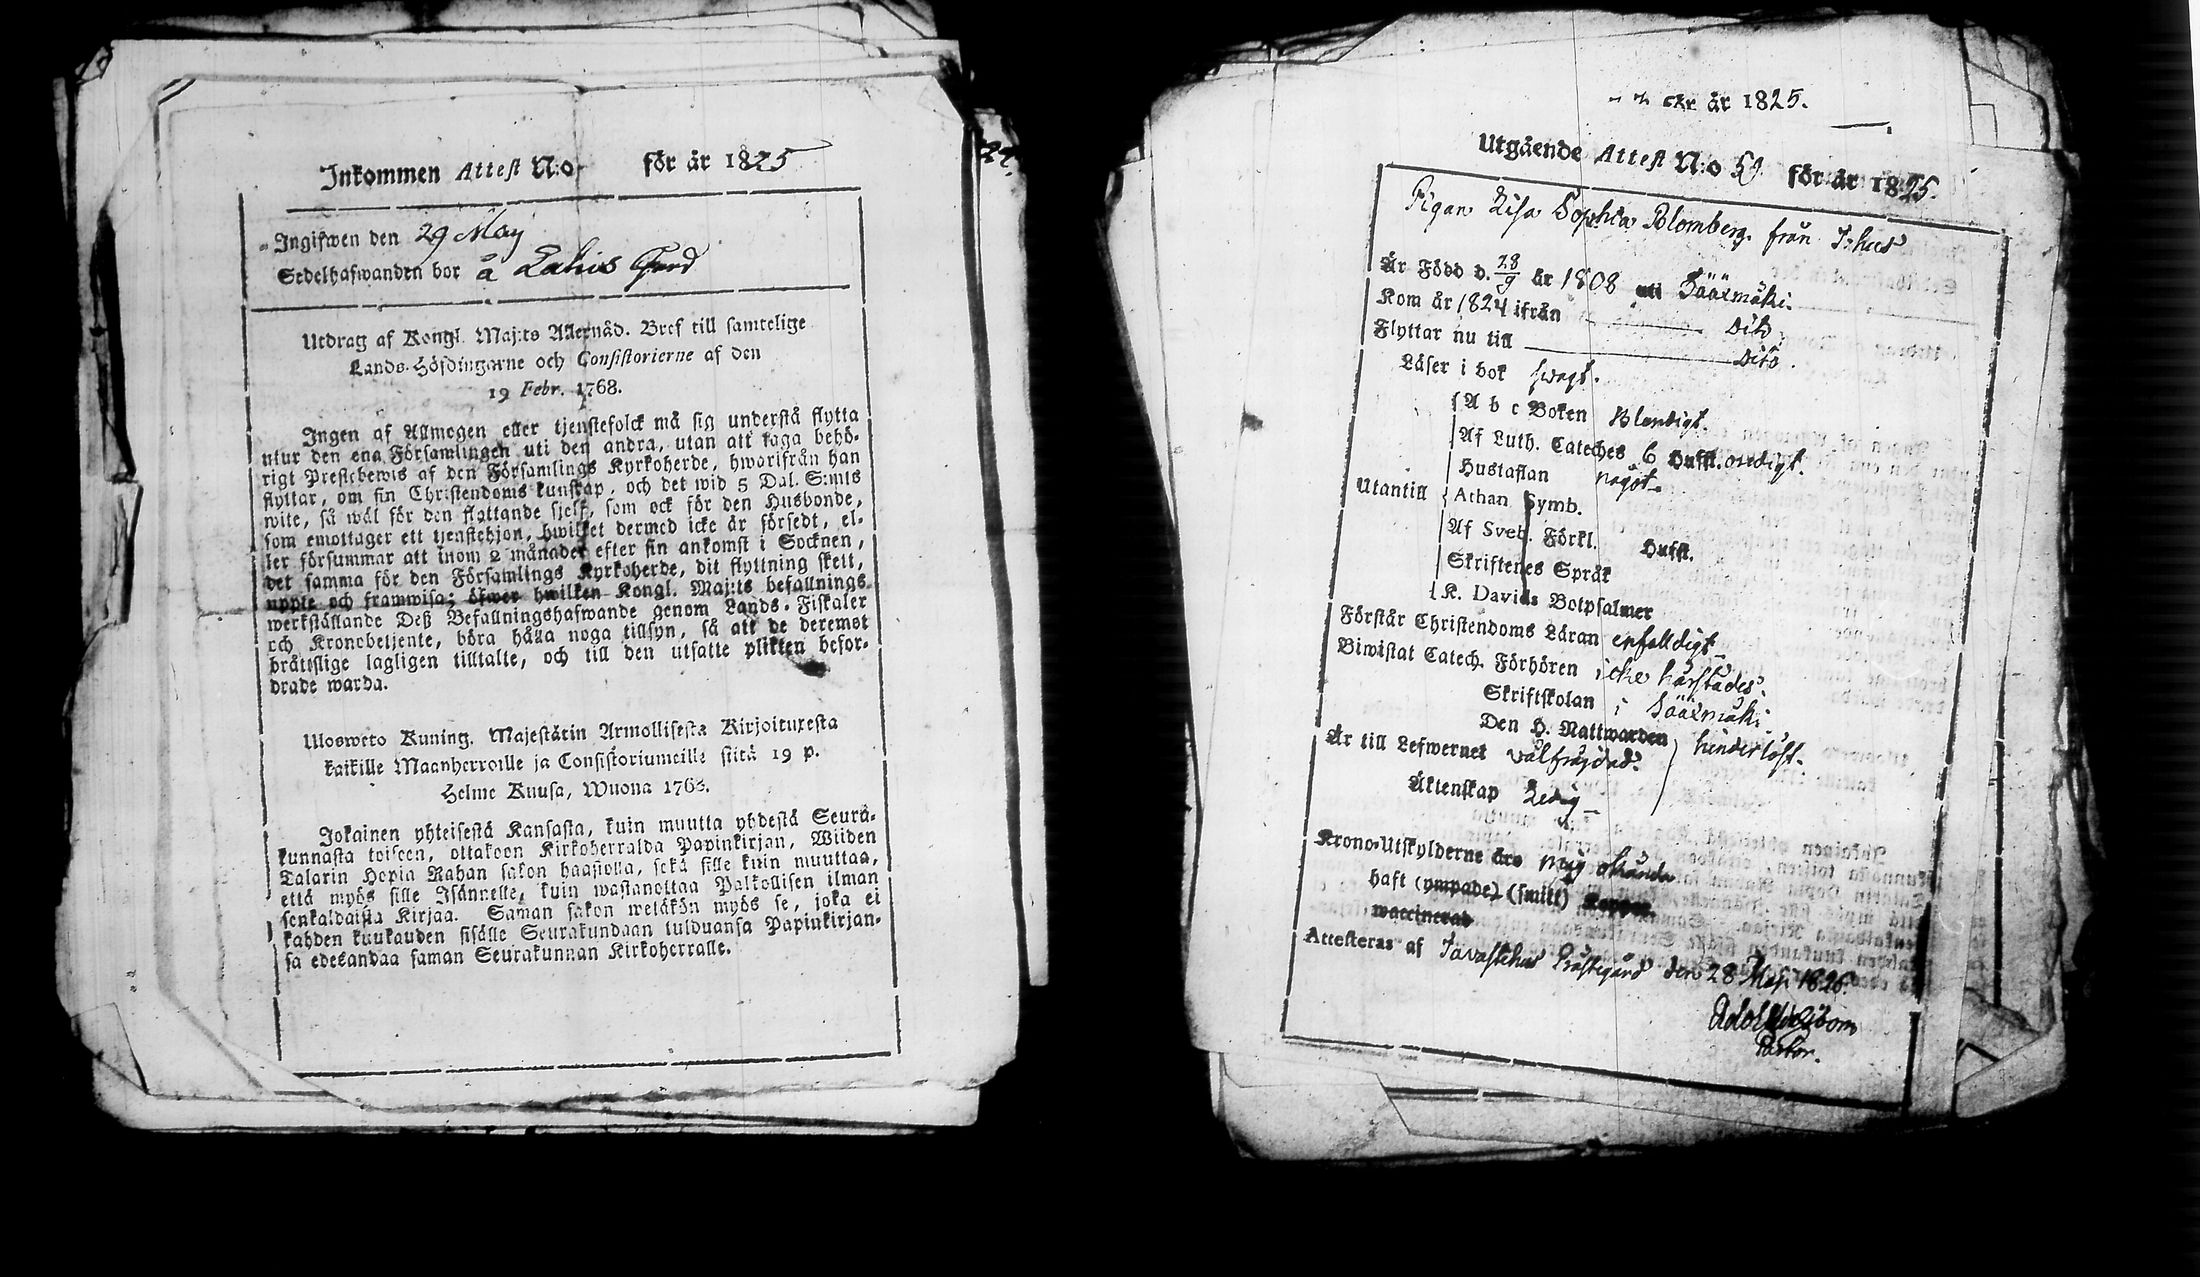 Inkommen Attest N:o för år 1825
Ingifwen den 29 May
Sedelhafwanden bor å Lahis Gård
Utdrag af Kongl. Maj:ts Allernåd. Bref till samtelige
Lands-Höfdingarne och Consistorierne af den
19 Febr. 1768.
Ingen af Allmogen eller tjenstefolck må sig understå flytta
utur den ena Församlingen uti den andra, utan att taga behö-
rigt Prestebewis af den Församlings Kyrkoherde, hwarifrån han
flyttar, om sin Christendoms kunskap, och det wid 5 Dal. S:mts
wite, så wäl för den flyttande sjelf, som ock för den Husbonde,
som emottager ett tjenstehjon, hwilket dermed icke är försedt, el-
ler försummar att inom 2 månader efter sin ankomst i Socknen,
det samma för den Församlings Kyrkoherde, dit flyttning skett,
uppte och framwisa; öfwer hwilken Kongl. Maj:ts befallnings
werkställande Deß Befallningshafwande genom Lands-Fiskaler
och Kronobetjente, böra hålla noga tillsyn, så att de deremot
bråtslige lagligen tilltalte, och till den utsatte plikten befor-
drade warda.
Ulosweto Kuning. Majestätin Armollisesta Kirjoituxesta
kaikille Maanherroille ja Consistoriumeille siitä 19 p.
Helme Kuusa, Wuona 1768.
Jokainen yhteisestä Kansasta, kuin muutta yhdestä Seura-
kunnasta toiseen, ottakoon Kirkoherralda Papinkirjan, Wiiden
Talarin Hopia Rahan sakon haastolla, sekä sille kuin muuttaa,
että myös sille Isännelle, kuin wastanottaa Palkollisen ilman
senkaldaista Kirjaa. Saman sakon wetäkön myös se, joka ei
kahden kuukauden sisälle Seurakundaan tulduansa Papinkirjan-
sa edesandaa saman Seurakunnan Kirkoherralle.
år 1825.
Utgående Attest N:o 59 för år 1825.
Pigan Lisa Sophia Blomberg från T:hus
Är Född d. 28/9 år 1808 uti Sääxmäki.
Kom år 1824 ifrån Dito
Flyttar nu till Dito.
Läser i bok swagt.
A b c Boken Blandigt.
Af Luth. Cateches 6 Hufst. ordigt.
Hustaflan något.
Utantill Athan Symb.
Af Sveb. Förkl. Hufst.
Skriftenes Språk
K. Davids Botpsalmer
Förstår Christendoms Läran enfalldigt
Biwistat Catech. Förhören icke härstädes.
Skriftskolan i Sääxmäki
Den H. Nattwarden
Är till Lefwernet välfrägdad. hinderlöst.
Äktenskap Ledig
Krono-Utskylderne äro mig okända
Haft (ympade) (smitt) Koppor
waccinerad
Attesteras af Tavastehus Prästegård den 28 Maji 1825.
Pastor.